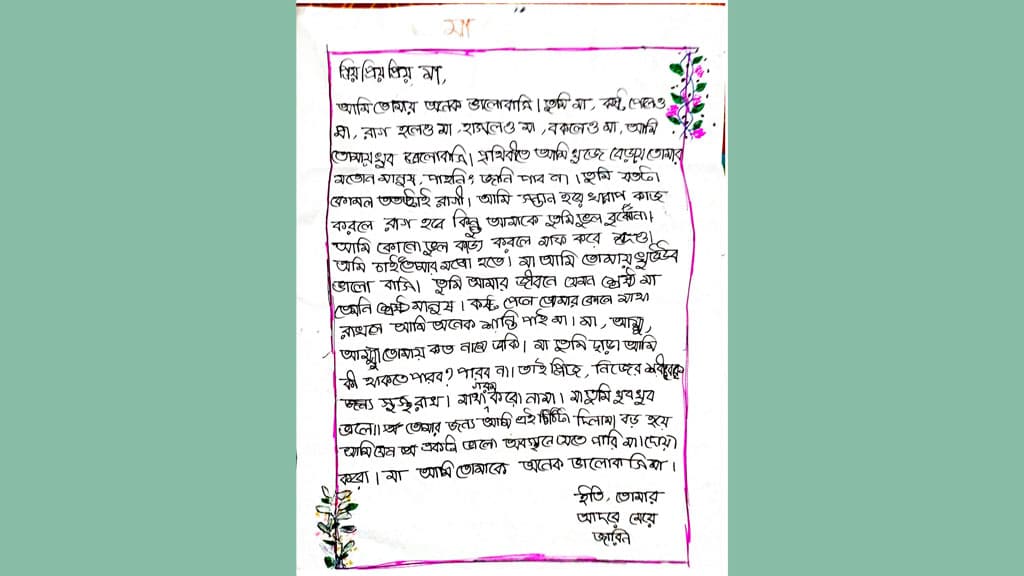 মা
প্রিয় প্রিয় প্রিয় মা,
আমি তোমায় অনেক ভালোবাসি। তুমি মা, কষ্ট পেলেও
মা, রাগ হলেও মা, হাসলেও মা, বকলেও মা, আমি
তোমায় খুব ভালোবাসি। পৃথিবীতে আমি খুজে বেড়াই তোমার
মতোন মানুষ, পাইনি জানি পাব না। তুমি যতটা
কোমল ততটাই রাগী। আমি সন্তান হয়ে খারাপ কাজ
করলে রাগ হবে কিন্তু আমাকে তুমি ভুল বুঝোনা।
আমি কোনো ভুল কাজ করলে মাফ করে দাও।
আমি চাই তোমার মতো হতে। মা আমি তোমায় খুউব
ভালো বাসি। তুমি আমার জীবনে যেমন শ্রেষ্ঠ মা
তেমনি শ্রেষ্ঠ মানুষ। কষ্ট পেলে তোমার কোলে মাথা
রাখলে আমি অনেক শান্তি পাই মা। মা, আম্মু,
আম্মা তোমায় কত নামে ডাকি। মা তুমি ছাড়া আমি
কী থাকতে পারব? পারব না। তাই প্লিজ, নিজের শরীরকে
জন্য সুস্থ রাখ। মাথা গরম করো না মা। মা তুমি খুব খুব
ভালো। তোমার জন্য আমি এই চিঠিটা দিলাম। বড় হয়ে
আমি যেন একটা ভালো অবস্থানে যেতে পারি মা। দোয়া
করো। মা আমি তোমাকে অনেক ভালোবাসি মা।
ইতি, তোমার
আদরে মেয়ে
জারিন